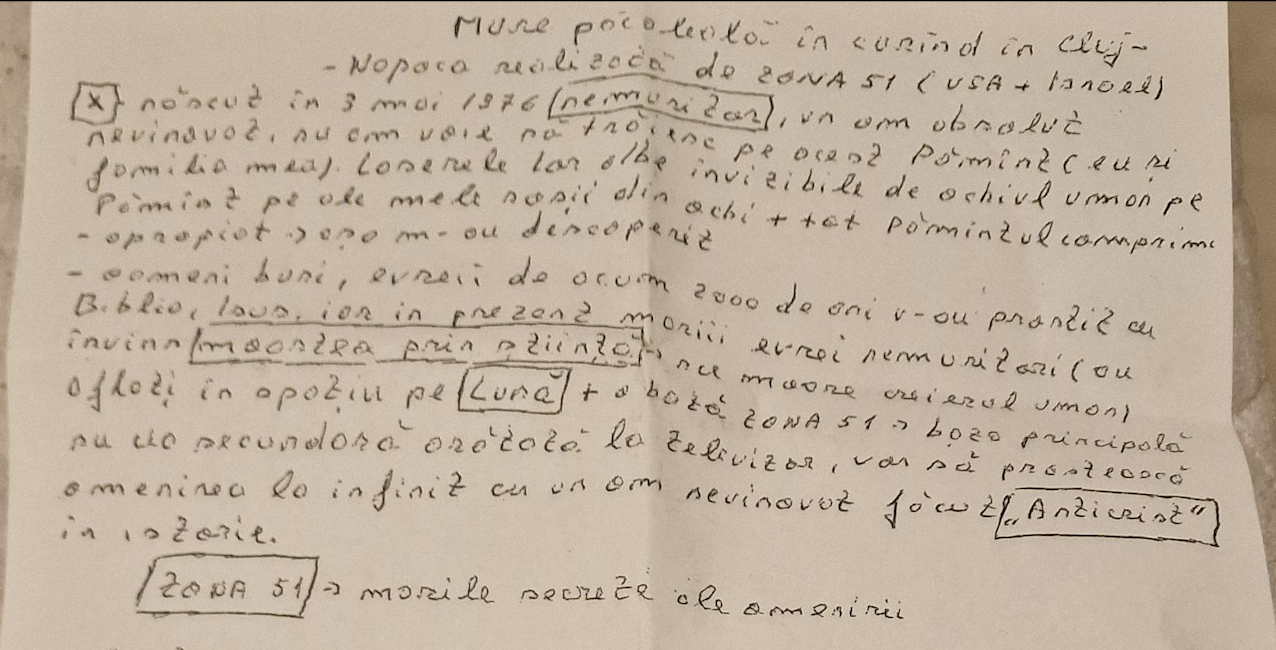 Mure păcoleală în curînd în Cluj-
- Napoca realizată de ZONA 51 (USA + Israel)
[X] născut în 3 mai 1976 (nemuritor), un om absolut
nevinovat, nu am voie să trăiesc pe acest Pămînt (eu și
familia mea). Laserele lor albe invizibile de ochiul uman pe
Pămînt pe ale mele roșii din ochi + tot Pămîntul comprimă
- apropiat → așa m-au descoperit
- oameni buni, evreii de acum 2000 de ani v-au prostit cu
Biblia, Isus, iar in prezent marii evrei nemuritori (au
învins moartea prin știință → nu moare creierul uman)
aflați în spațiu pe Lună + o bază ZONA 51 → baza principală
nu cea secundară arătată la televizor, vor să prostească
omenirea la infinit cu un om nevinovat făcut „Anticrist"
în istorie.
ZONA 51 → marile secrete ale omenirii